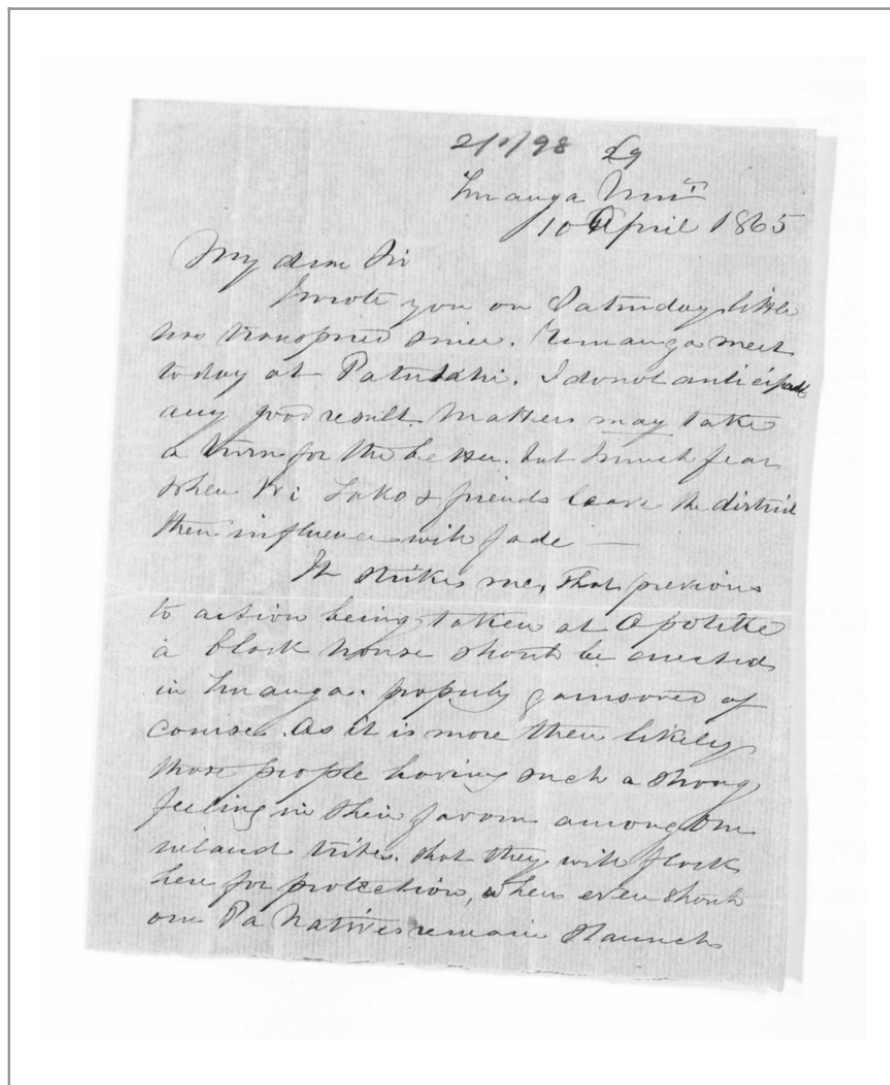 Turanga Nui
10 April 1865
My dear Sir
I wrote you on Saturday little
has transpired since. Turanga meet
to day at Patutahi. I do not anticipate
any good result. Matters may take
a turn for the better. but I much fear
when Wi Tako & friends leave the district
their influence will fade —
It strikes me, that previous
to action being taken at Opotiki
a block house should be erected
in Turanga. properly garrisoned of
course. As it is more then likely
those people having such a strong
feeling in their favour among our
inland tribes. that they will flock
here for protection, when even should
our Pa Natives remain staunch